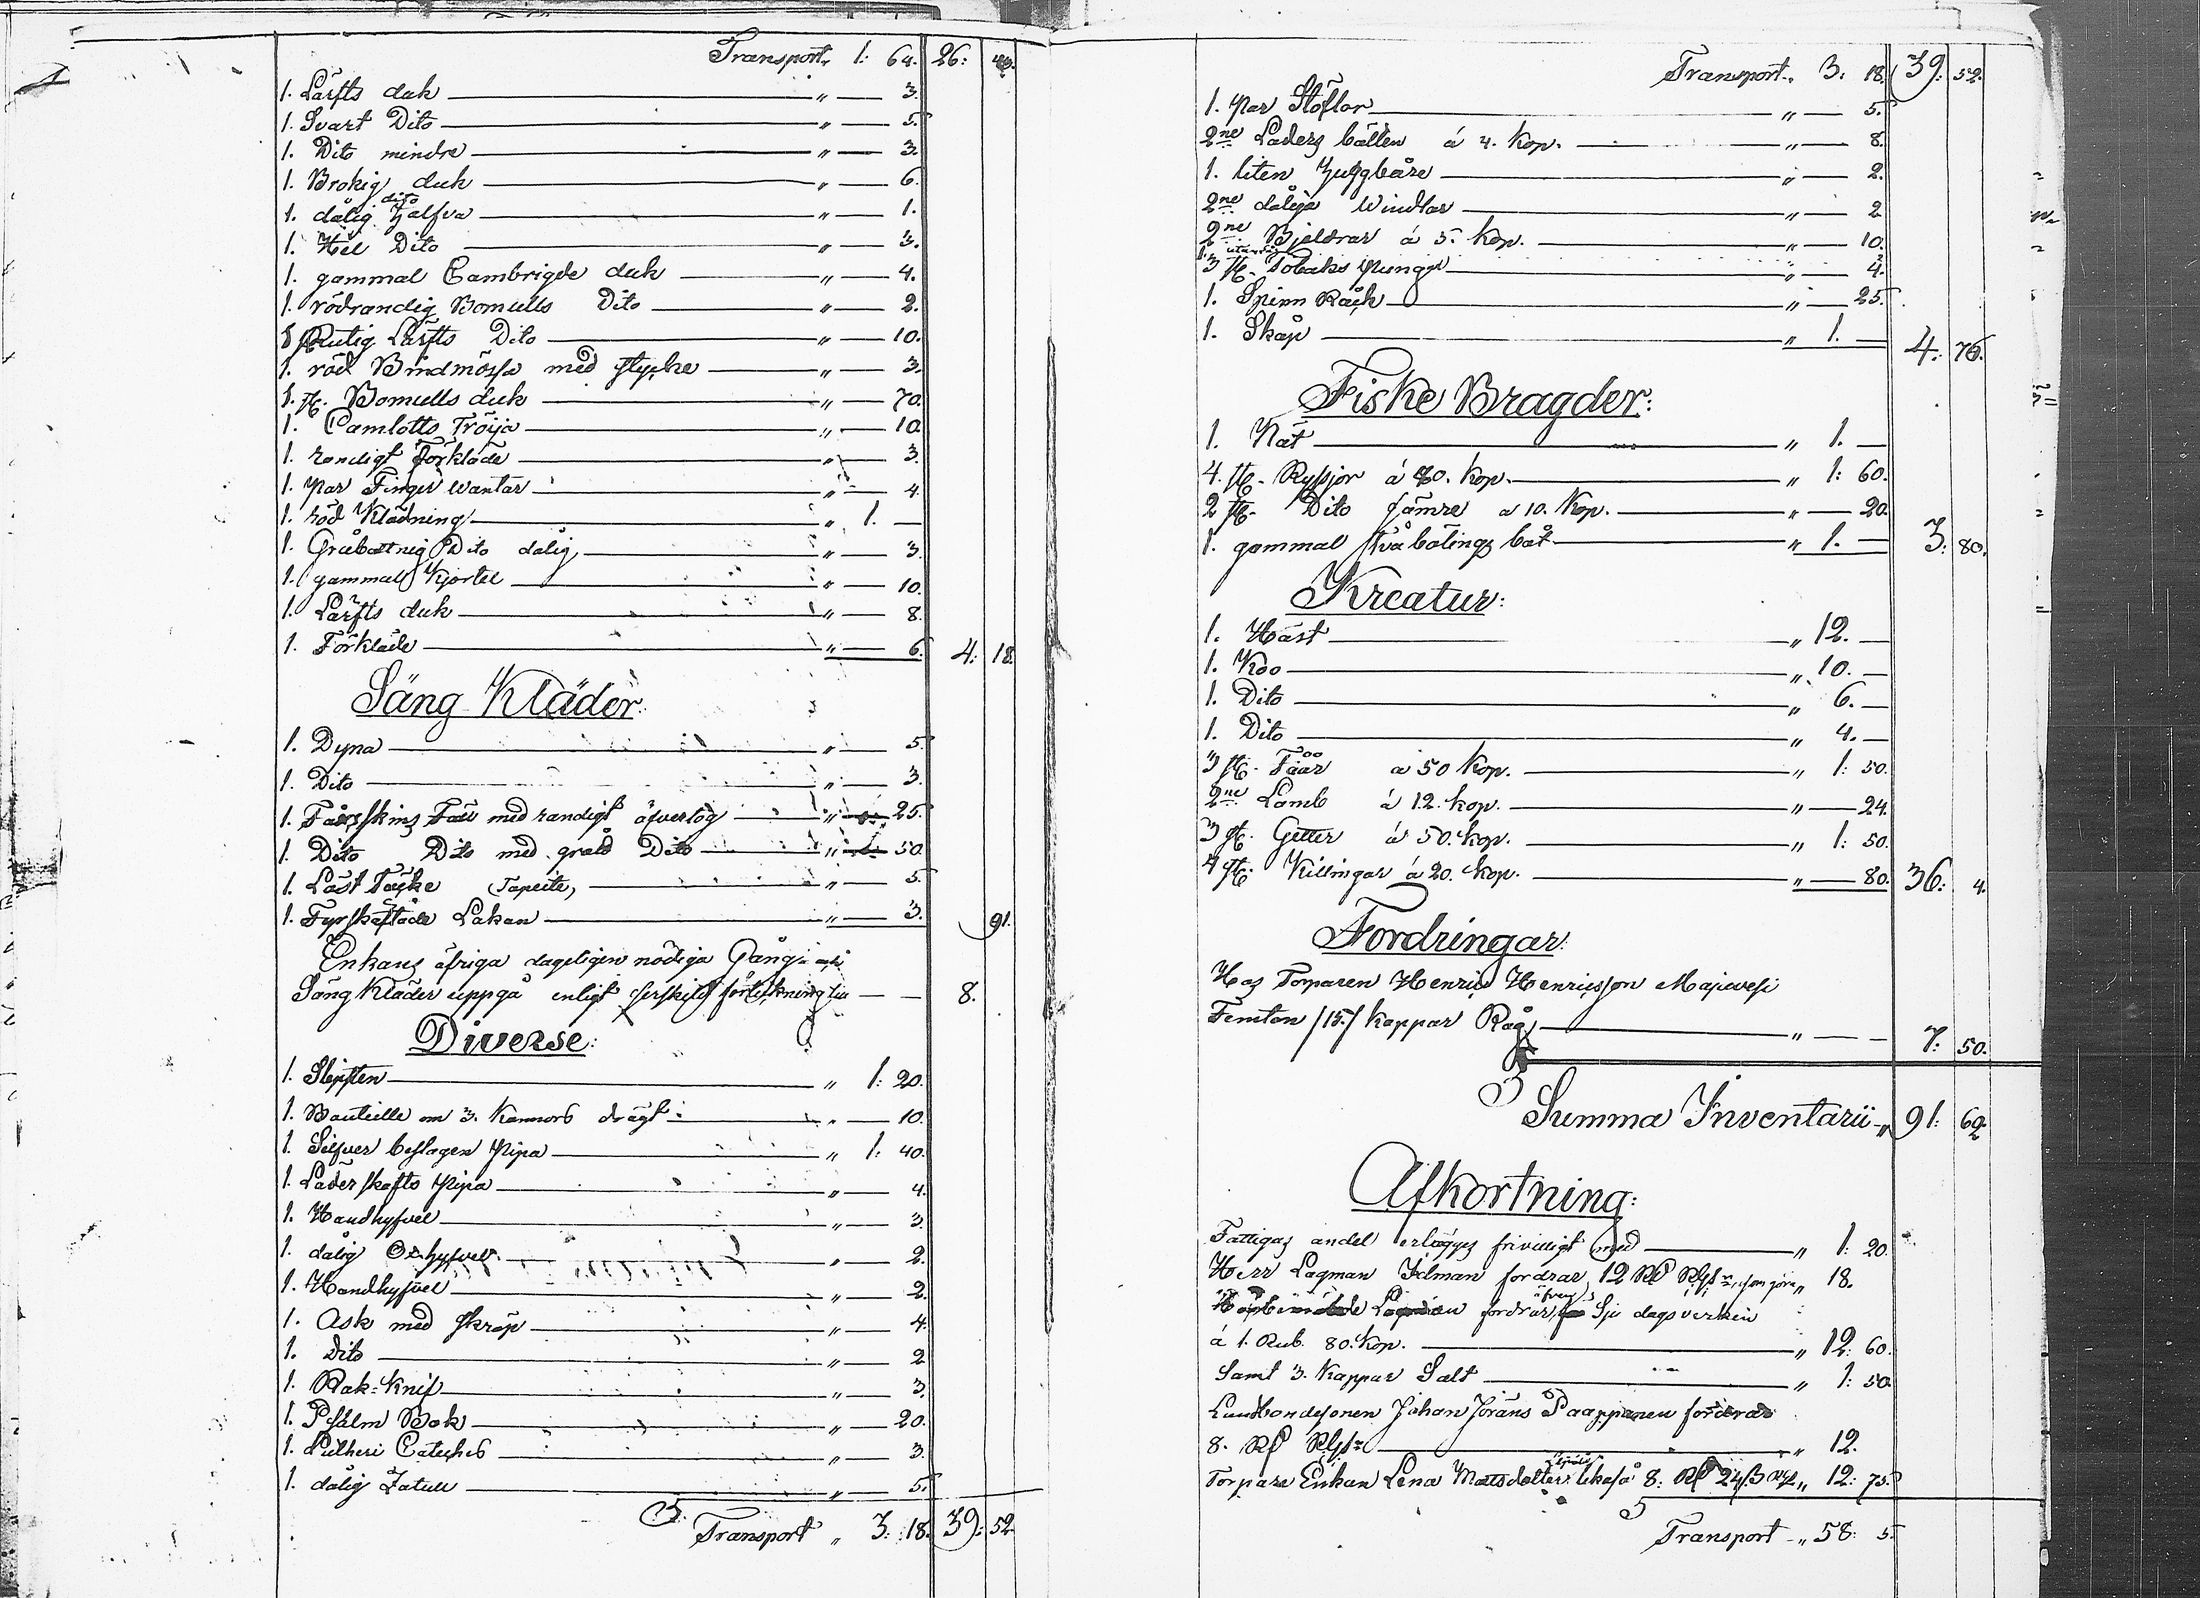 Transport „ 1: 64. 26: 43.
1. Lärfts duk „ — 3.
1. Svart Dito „ — 5.
1. Dito mindre „ — 3.
1. Brokig duk „ — 6.
1. dålig dito halfva „ — 1.
1. Hel Dito „ — 3.
1. gammal Cambrigde duk „ — 4.
1. rödrandig Bomulls Dito „ — 2.
1 Rutig Lärfts Dito „ — 10.
1. röd Bindmössa med stycke „ — 3.
1. st. Bomulls duk „ — 70.
1. Camlotts Tröija „ — 10.
1. randigt Förkläde „ — 3.
1. par Finger wantar „ — 4.
1. röd Klädning „ 1. —
1. Gråbottnig Dito dålig „ — 3.
1. gammal Kjortel „ — 10.
1. Lärfts duk „ — 8.
1. Förkläde „ — 6. 4: 18.
Säng Kläder:
1. Dyna „ — 5.
1. Dito „ — 3.
1. Fårskins Fäll med randigt öfvertog „ 25.
1. Dito Dito med grått Dito „ 50.
1. Läst Täcke (Tapeite) „ — 5.
1. Fyrskäftade Lakan „ — 3. 91.
Enkans öfriga dageligen nödiga Gång- och
Sängkläder uppgå enligt serskild förteckning till — — 8.
Diverse:
1. Slipsten „ 1: 20.
1. Bouteille om 3. Kannors drägt „ — 10.
1. Silfver beslagen Pipa „ 1: 40.
1. Läderskafts Pipa „ — 4.
1. Handhyfvel „ — 3.
1. dålig hyfvel „ — 2.
1. Handhyfvel „ — 2.
1. Ask med skräp „ — 4.
1. Dito „ — 2
1. Rak-Knif „ — 3.
1. Psalm Bok „ — 20.
1. Lutheri Cateches „ — 3.
1. dålig „ — 5.
Transport „ 3: 18. 39: 52.
Transport „ 3: 18. 39: 52.
1. par Stöflor „ — 5.
2ne Läders bälten á 4. Kop. „ — 8.
1. liten „ — 2.
2ne dåliga Windlar „ — 2
2ne Bjeldrar á 5. Kop. „ — 10.
3 st. Tobaks pungar „ — 4.
1. Spinn Råck „ — 25.
1. Skåp „ 1. — 4: 76.
Fiske Bragder:
1. Nät „ 1. —
4. st. Ryssjor á 40. Kop. „ 1: 60.
2 st. Dito sämre a 10. Kop. „ — 20.
1. gammal två bålings båt „ 1. — 3: 80.
Kreatur:
1. Häst „ 12. —
1. Koo „ 10. —
1. Dito „ 6. —
1. Dito „ 4. —
3 st. Fåår á 50 Kop. „ 1: 50.
2ne Lamb á 12. kop. „ — 24.
3 st. Getter á 50. kop. „ 1: 50.
4 st. Killingar á 20. kop. „ — 80. 36: 4.
Fordringar:
Hos Torparen Henric Henricsson Majavesi
Femton /15./ kappar Råg „ — — 7: 50.
Summa Inventarii „ 91: 62
Afkortning:
Fattigas andel erlägges frivilligt med „ 1: 20.
Herr Lagman Idman fordrar 12 som göra „ 18.
fordrar äfven Sju dagsverken
á 1. Rub. 80. Kop. „ 12: 60.
Samt 3. Kappar Salt „ 1: 50.
Landbondesonen Johan Jöräns Paappanen fordrar
8. „ 12.
Torpare Enkan Lena Mattsdotter likaså 8: „ 12: 75.
Transport „ 58: 5.